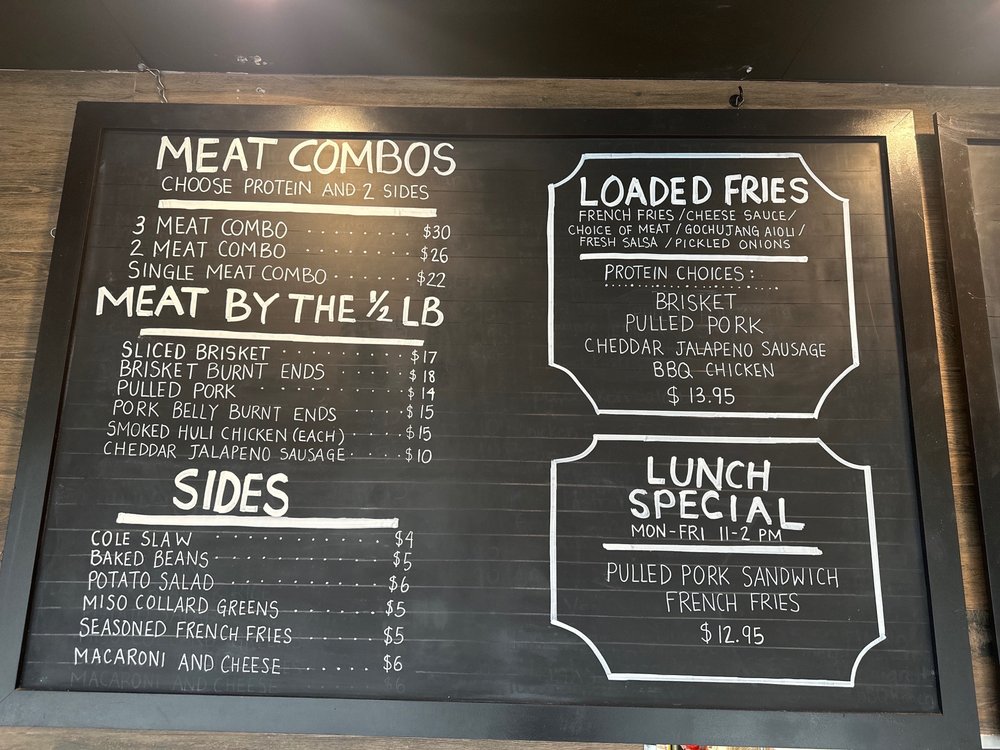 MEAT COMBOS
CHOOSE PROTEIN AND 2 SIDES
3 MEAT COMBO ........ $30
2 MEAT COMBO ........ $26
SINGLE MEAT COMBO ...... $22
MEAT BY THE 1/2 LB
SLICED BRISKET ......... $17
BRISKET BURNT ENDS ..... $18
PULLED PORK .......... $14
PORK BELLY BURNT ENDS ..... $15
SMOKED HULI CHICKEN (EACH) .... $15
CHEDDAR JALAPENO SAUSAGE .... $10
SIDES
COLE SLAW ............ $4
BAKED BEANS ........... $5
POTATO SALAD ........... $6
MISO COLLARD GREENS ...... $5
SEASONED FRENCH FRIES ...... $5
MACARONI AND CHEESE ...... $6
MACARONI AND CHEESE $6
LOADED FRIES
FRENCH FRIES / CHEESE SAUCE /
CHOICE OF MEAT / GOCHUJANG AIOLI /
FRESH SALSA / PICKLED ONIONS
PROTEIN CHOICES:
BRISKET
PULLED PORK
CHEDDAR JALAPENO SAUSAGE
BBQ CHICKEN
$ 13.95
LUNCH
SPECIAL
MON-FRI 11-2 PM
PULLED PORK SANDWICH
FRENCH FRIES
$12.95